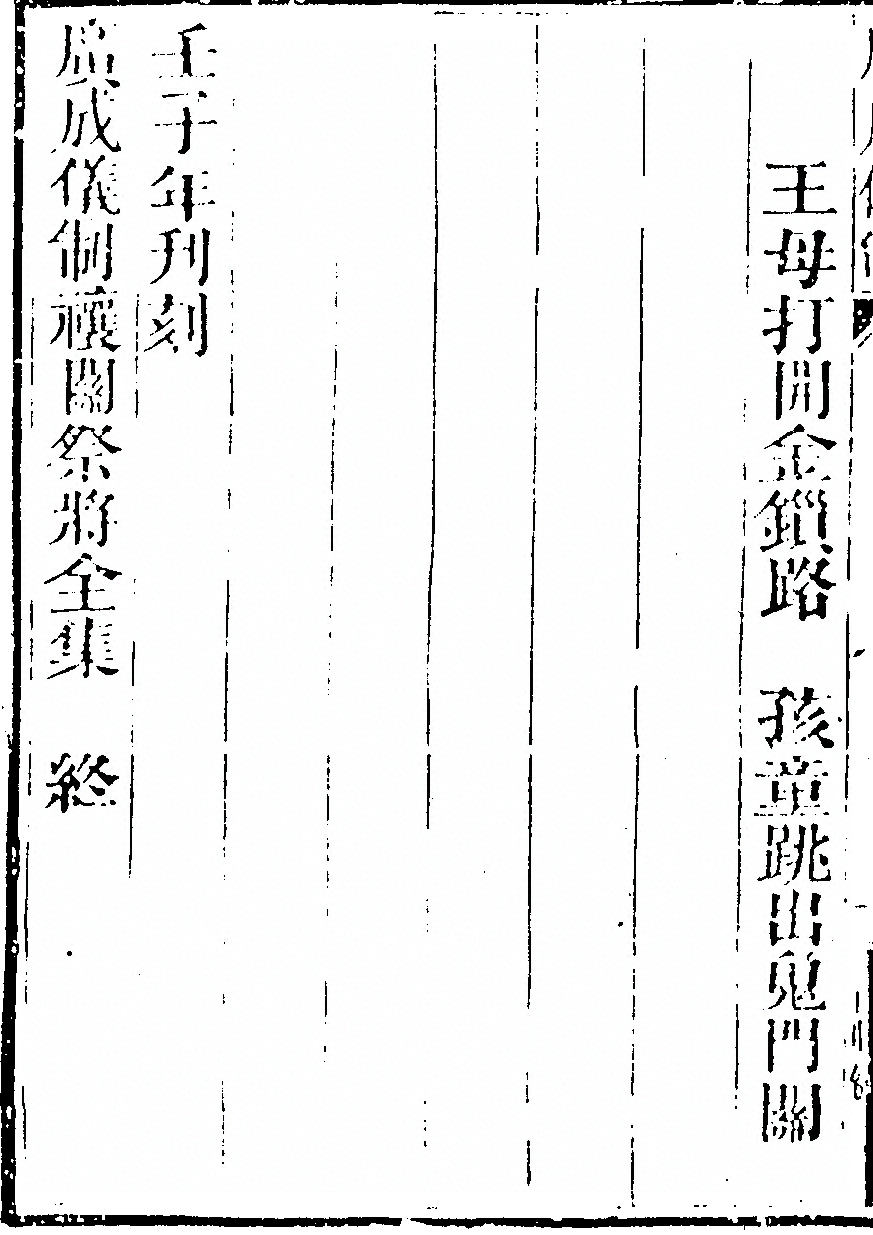 王母打開金鎖路　孩童跳出鬼門關
壬子年刊刻
廣成儀制禳關祭將全集　終